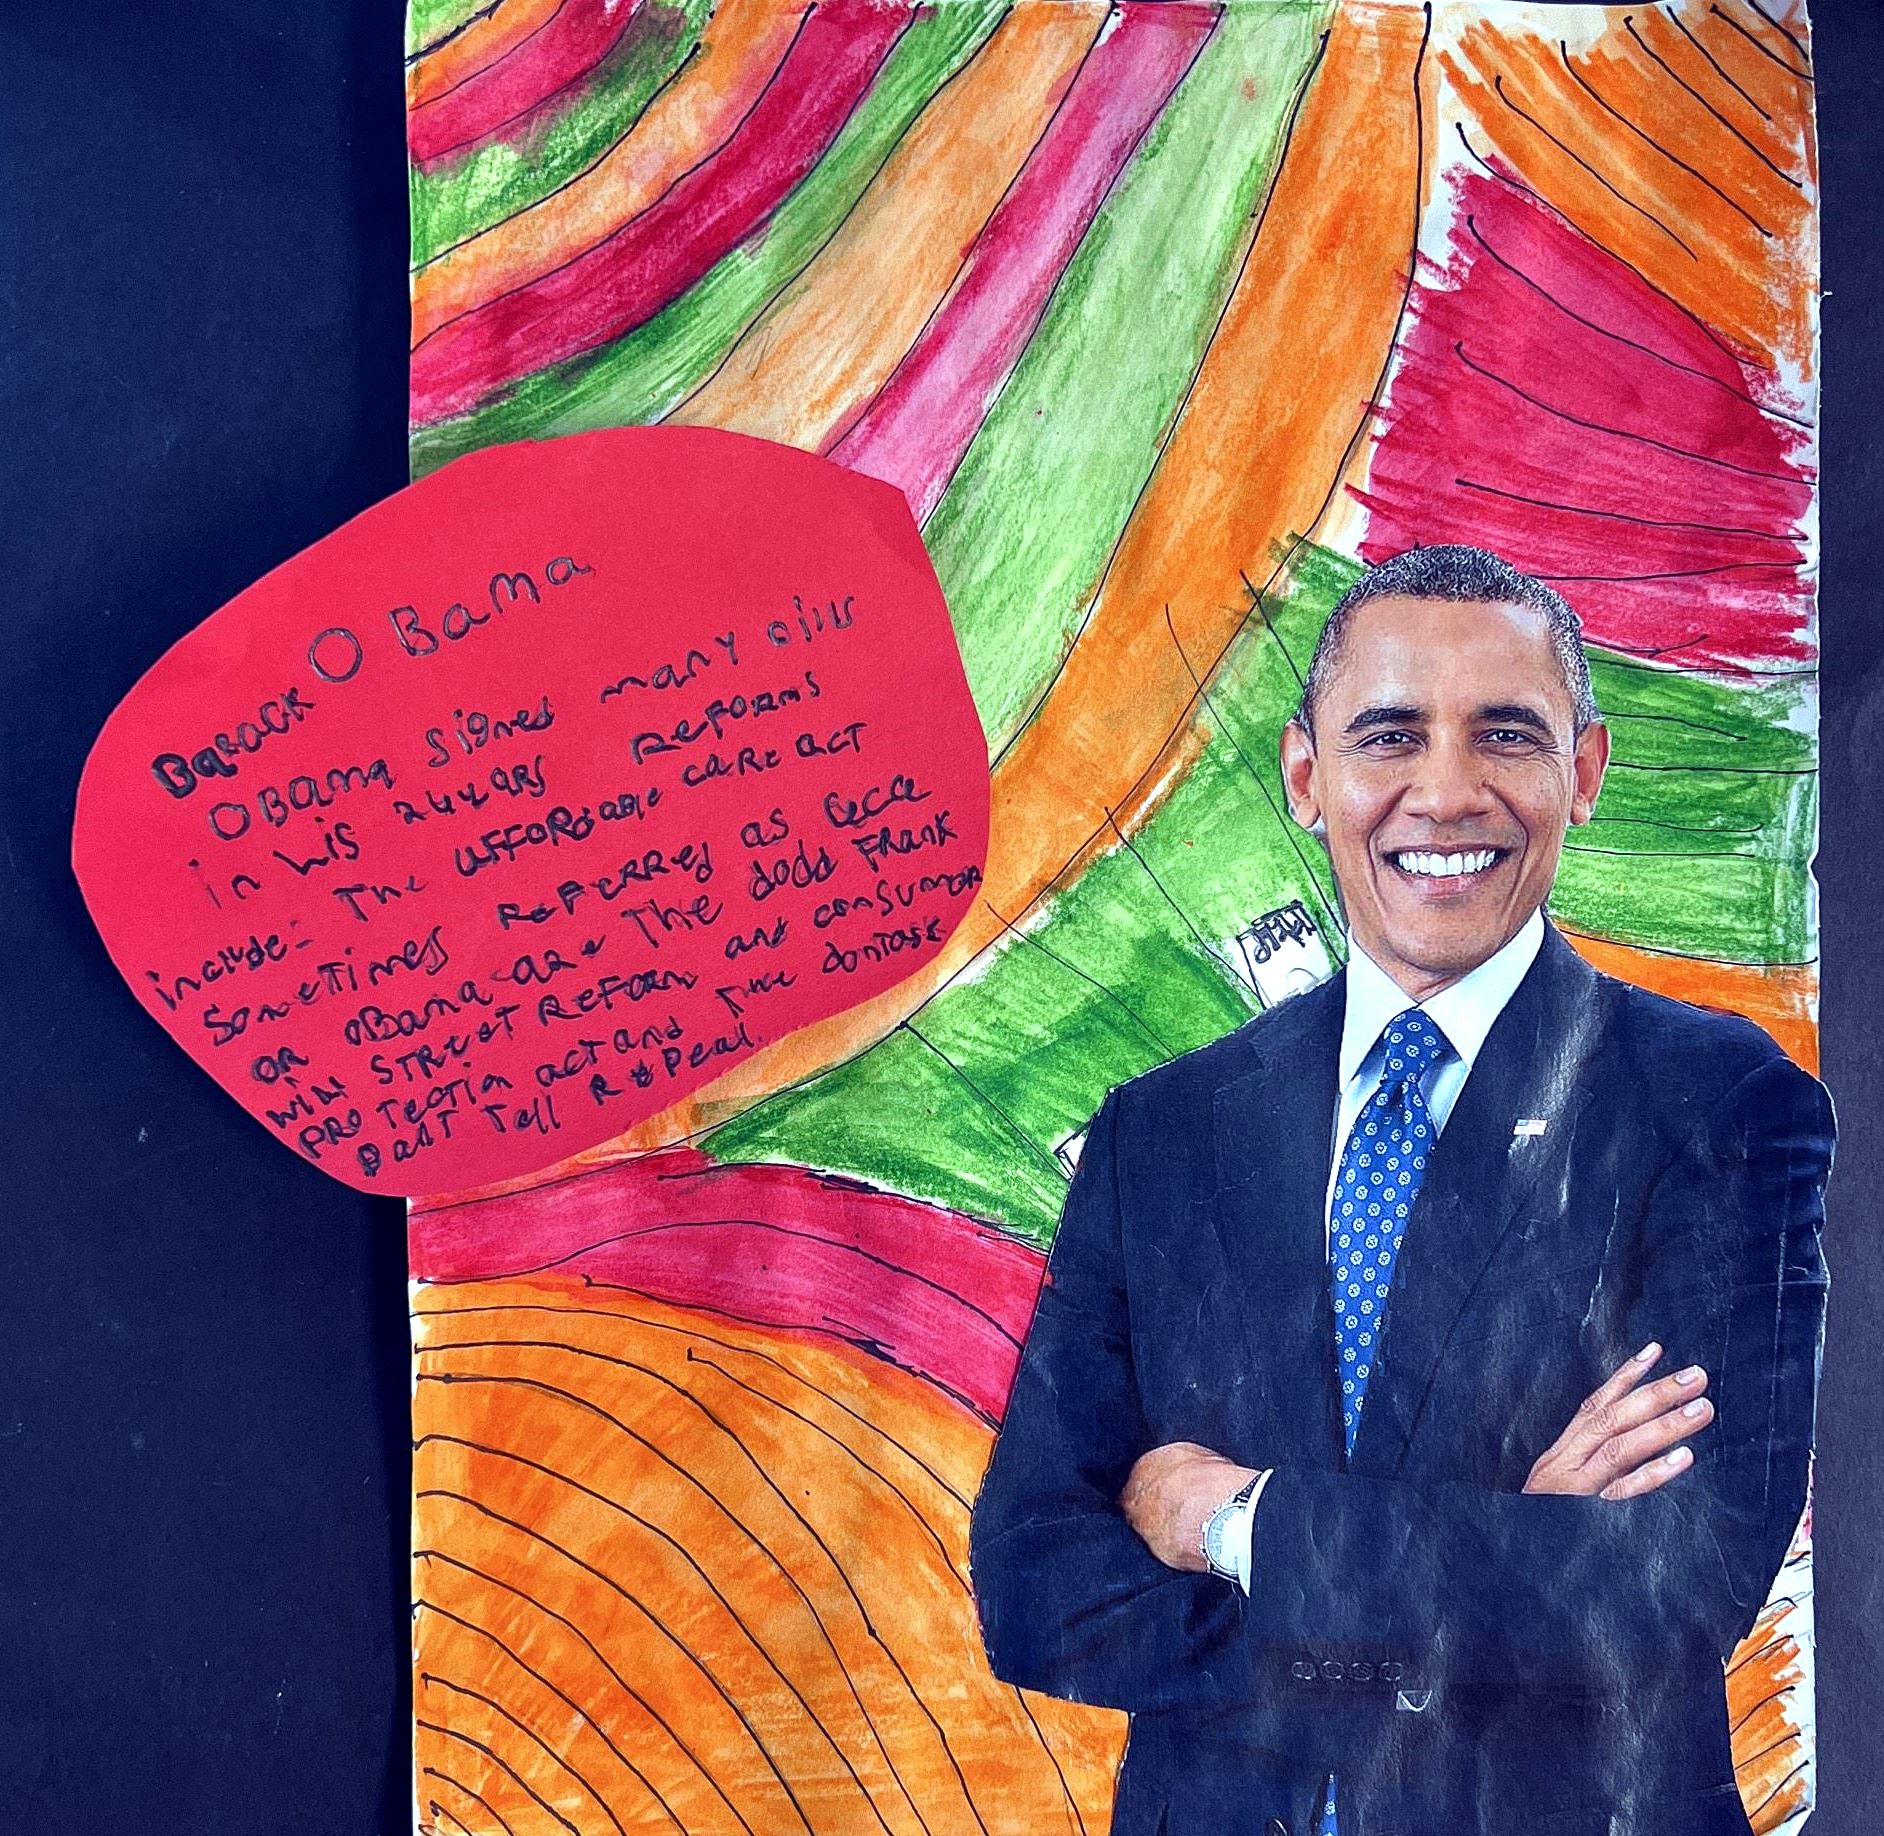 Barack OBama
OBama signed many
in his reforms
include: The affordable care act
Sometimes Referred as
or oBama care The dodd Frank
STReeT ReForm and consumer
PROTection act and The dontask
Tell Repeal.